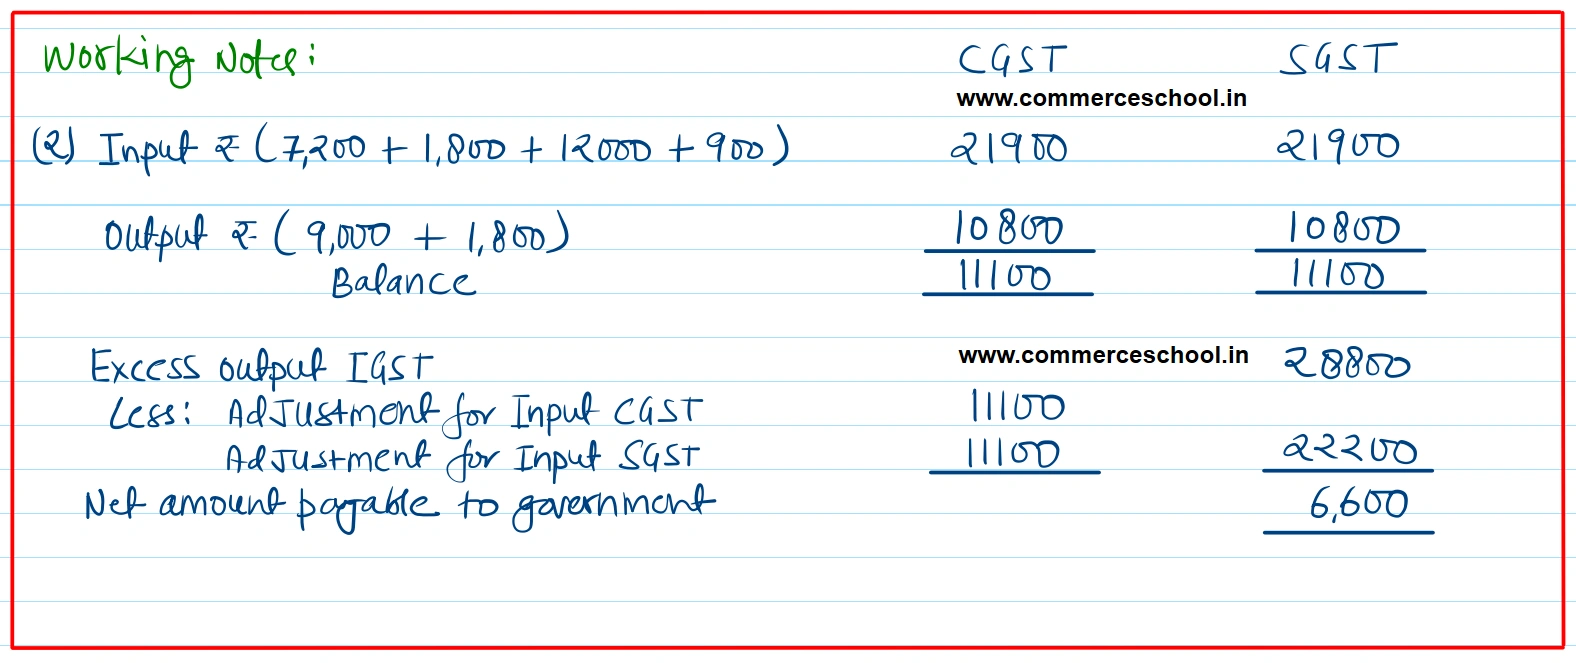 Working Notes: CGST SGST
www.commerceschool.in
(2) Input ₹ (7,200 + 1,800 + 12000 + 900) 21900 21900
Output ₹ (9,000 + 1,800) 10800 10800
Balance 11100 11100
Excess output IGST www.commerceschool.in 28800
Less: Adjustment for Input CGST 11100
Adjustment for Input SGST 11100 22200
Net amount payable to government 6,600